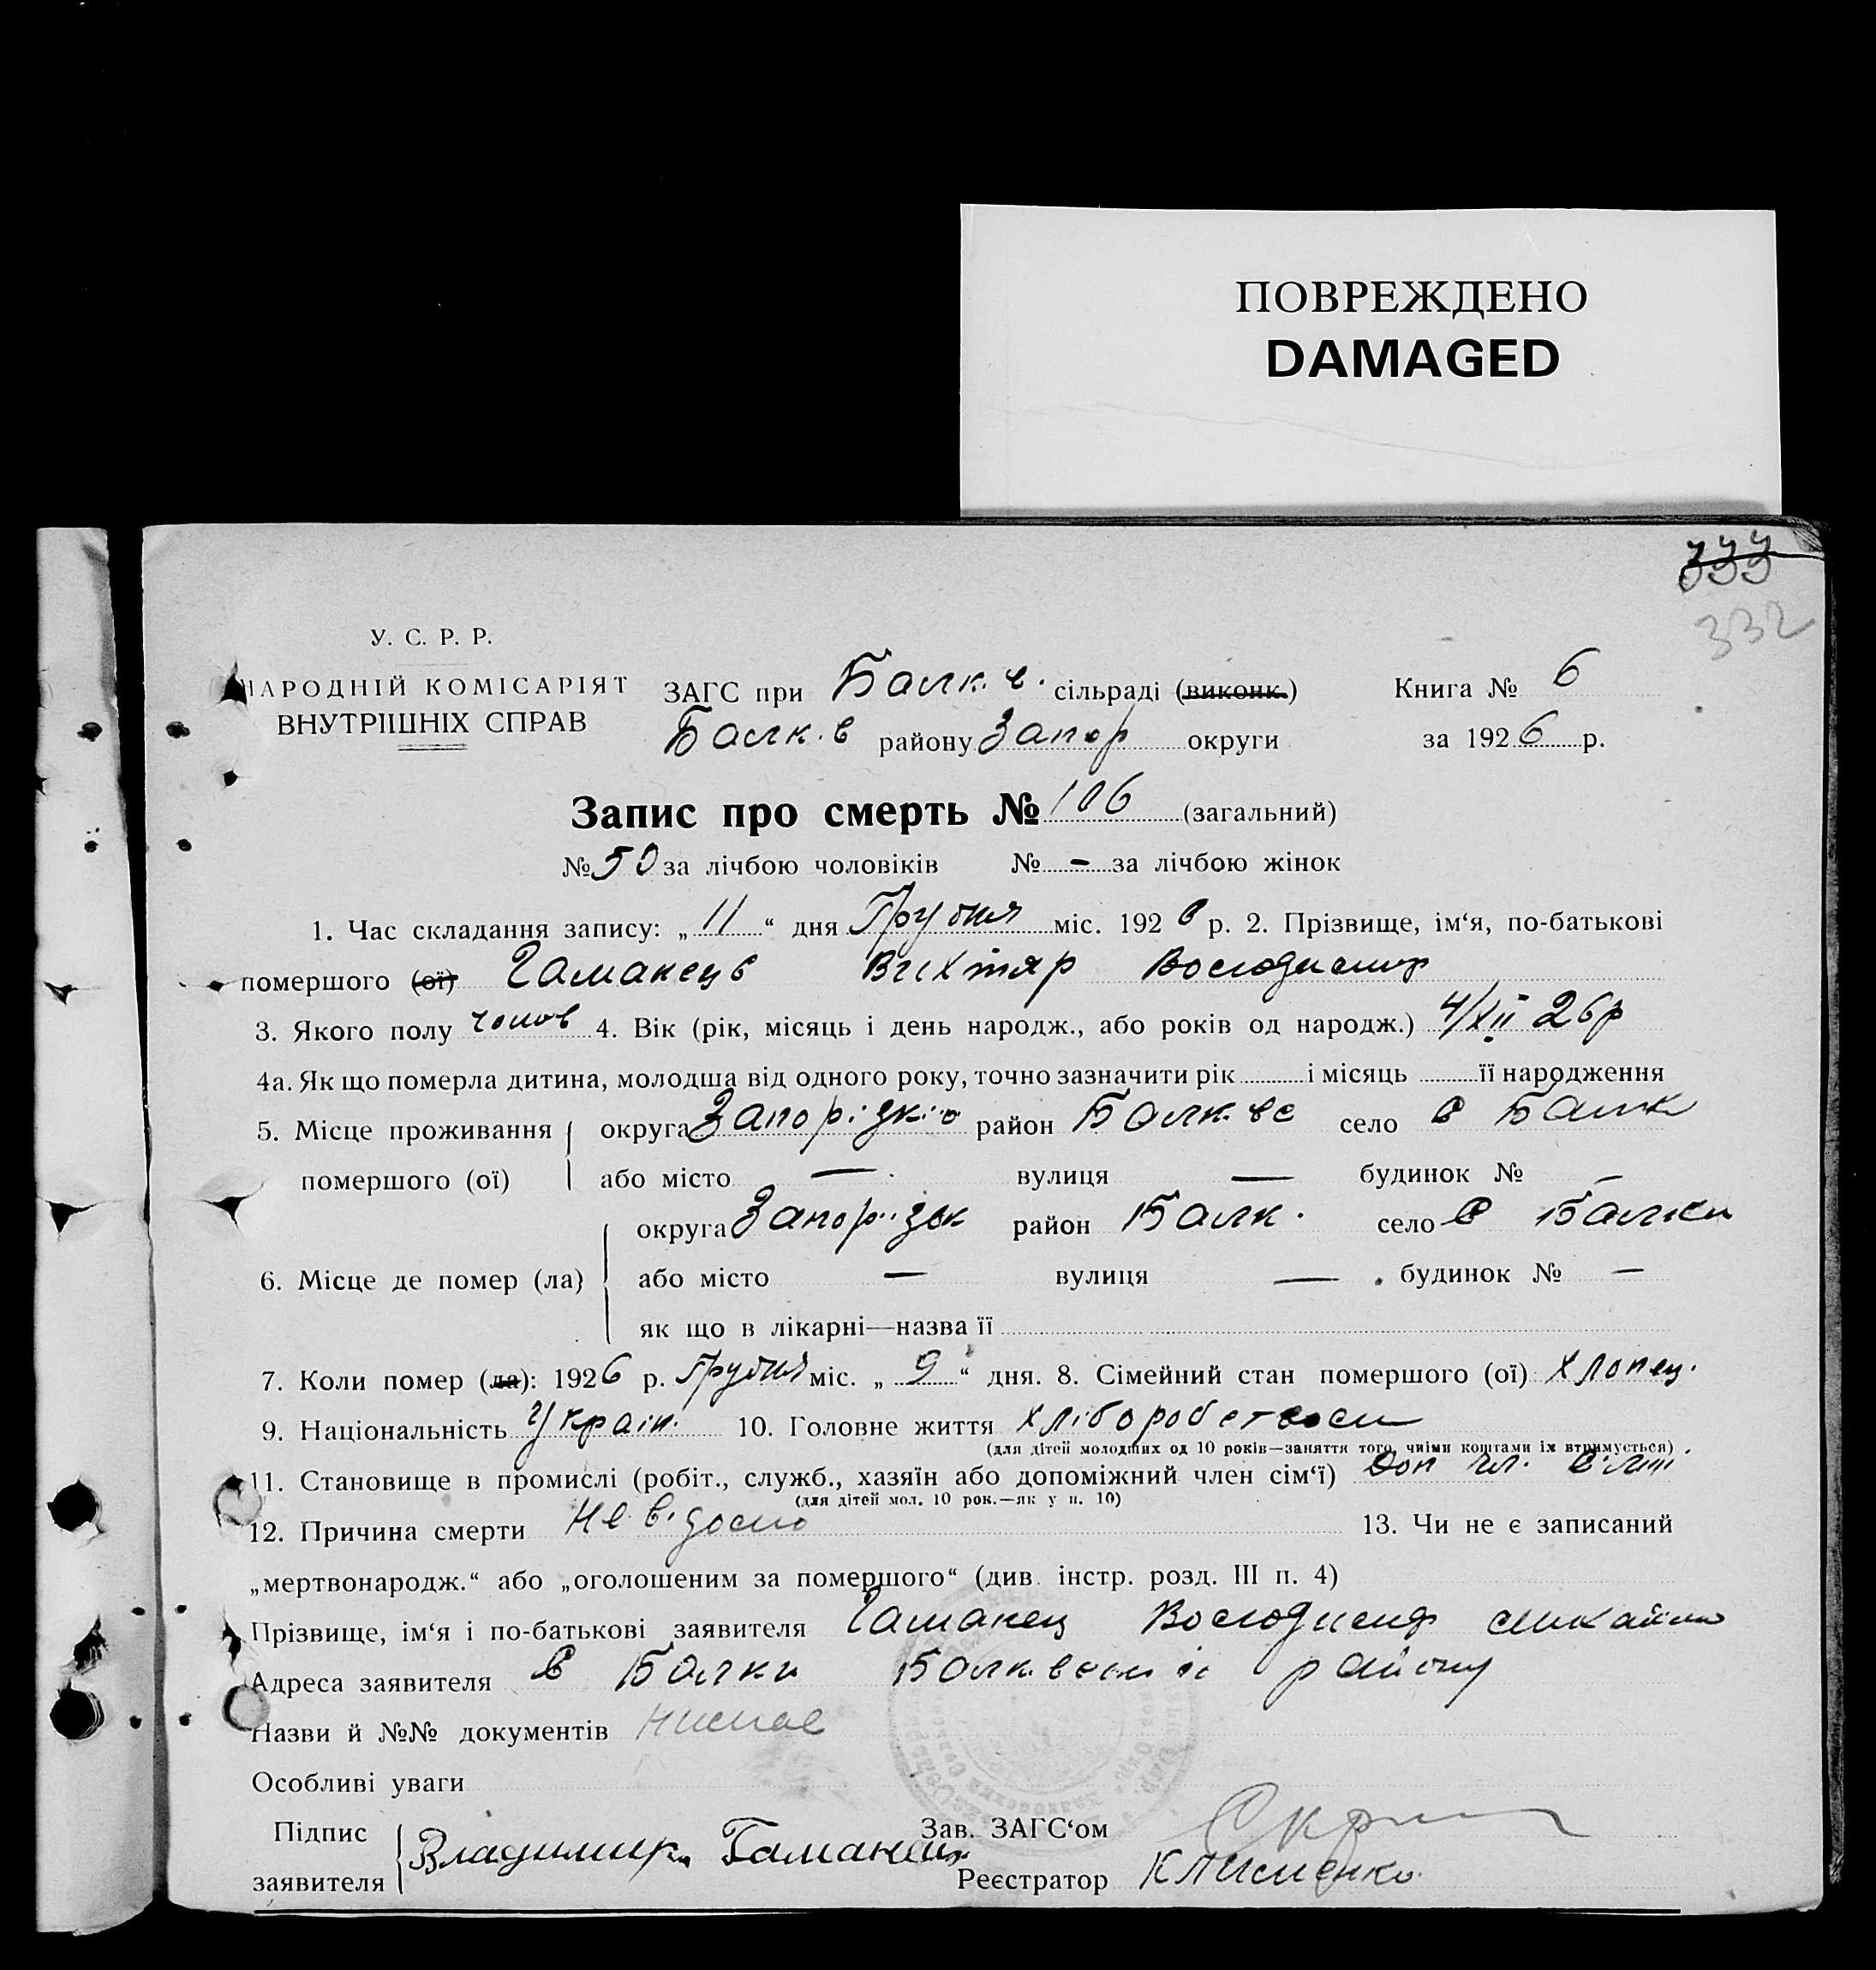 ПОВРЕЖДЕНО
DAMAGED
333
332
У. С. Р. Р.
НАРОДНІЙ КОМІСАРІЯТ
ВНУТРІШНІХ СПРАВ
ЗАГС при Балк. в. сільраді (виконк.)
Балк. в району Запор округи
Книга № 6
за 1926 р.
Запис про смерть № 106 (загальний)
№ 50 за лічбою чоловіків № - за лічбою жінок
1. Час складання запису: „ 11 “ дня Грудня міс. 1926 р. 2. Прізвище, ім‘я, по-батькові
помершого (ої) Гаманець Вихтяр Володимир
3. Якого полу чолов 4. Вік (рік, місяць і день народж., або років од народж.) 4/XII 26р
4а. Як що померла дитина, молодша від одного року, точно зазначити рік і місяць її народження
5. Місце проживання помершого (ої) округа район Балк. село В Балк
або місто — вулиця — будинок № —
6. Місце де помер (ла) округа Запорізьк район Балк. село В Балки
або місто — вулиця — будинок № —
як що в лікарні—назва її
7. Коли помер (ла): 1926 р. Грудня міс. „ 9 “ дня. 8. Сімейний стан помершого (ої) хлопец.
9. Національність Україн. 10. Головне життя хліборобством
(для дітей молодших од 10 років—заняття того, чиїми коштами їх втримується)
11. Становище в промислі (робіт., служб., хазяїн або допоміжний член сім‘ї) доп чл. сім'ї
(для дітей мол. 10 рок.—як у п. 10)
12. Причина смерти Не відомо 13. Чи не є записаний
„мертвонародж.“ або „оголошеним за помершого“ (див. інстр. розд. III п. 4)
Прізвище, ім‘я і по-батькові заявителя Гаманец Володимир Михайло
Адреса заявителя В Балки району
Назви й №№ документів Немає
Особливі уваги
Підпис заявителя Владимир Гаманец
Зав. ЗАГС‘ом
Реєстратор Клименко